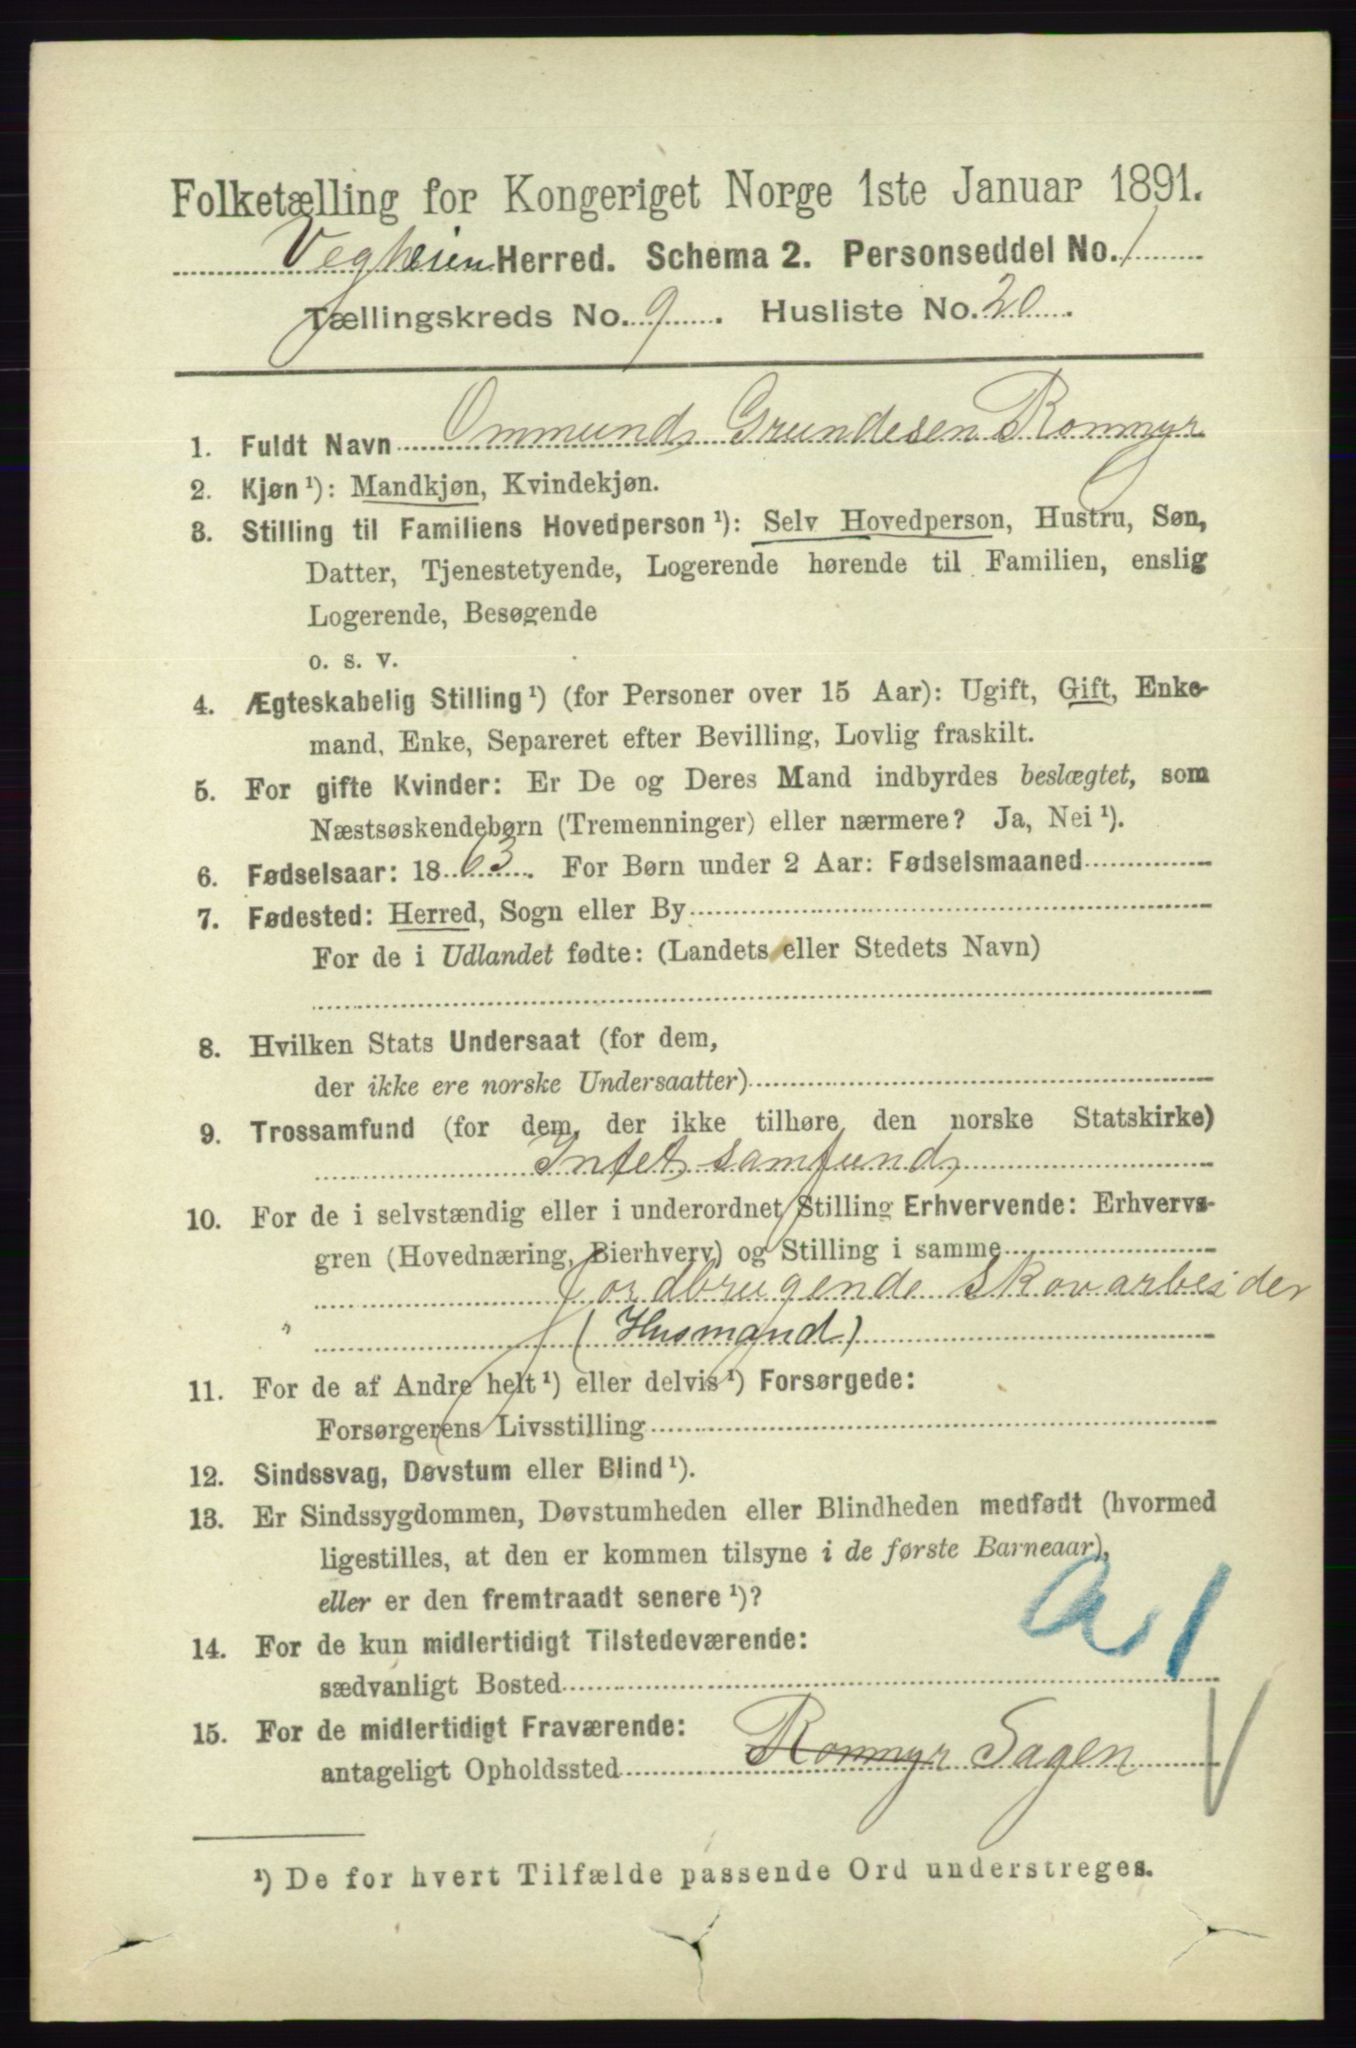 Folketælling for Kongeriget Norge 1ste Januar 1891.
Vegheien Herred. Schema 2. Personseddel No. 1
Tællingskreds No. 9. Husliste No. 20.
1. Fuldt Navn Ommund Grundesen Rommyr
2. Kjøn ¹): Mandkjøn, Kvindekjøn.
3. Stilling til Familiens Hovedperson ¹): Selv Hovedperson, Hustru, Søn,
Datter, Tjenestetyende, Logerende hørende til Familien, enslig
Logerende, Besøgende
o. s. v.
4. Ægteskabelig Stilling ¹) (for Personer over 15 Aar): Ugift, Gift, Enke-
mand, Enke, Separeret efter Bevilling, Lovlig fraskilt.
5. For gifte Kvinder: Er De og Deres Mand indbyrdes beslægtet, som
Næstsøskendebørn (Tremenninger) eller nærmere? Ja, Nei ¹).
6. Fødselsaar: 1863. For Børn under 2 Aar: Fødselsmaaned
7. Fødested: Herred, Sogn eller By
For de i Udlandet fødte: (Landets eller Stedets Navn)
8. Hvilken Stats Undersaat (for dem,
der ikke ere norske Undersaatter)
9. Trossamfund (for dem, der ikke tilhøre den norske Statskirke)
Intet samfund
10. For de i selvstændig eller i underordnet Stilling Erhvervende: Erhvervs-
gren (Hovednæring, Bierhverv) og Stilling i samme
Jordbrugende skovarbeider
(Husmand)
11. For de af Andre helt ¹) eller delvis ¹) Forsørgede:
Forsørgerens Livsstilling
12. Sindssvag, Døvstum eller Blind ¹).
13. Er Sindssygdommen, Døvstumheden eller Blindheden medfødt (hvormed
ligestilles, at den er kommen tilsyne i de første Barneaar),
eller er den fremtraadt senere ¹)?
a 1
14. For de kun midlertidigt Tilstedeværende:
sædvanligt Bosted
15. For de midlertidigt Fraværende:
antageligt Opholdssted Rommyr Sagen
¹) De for hvert Tilfælde passende Ord understreges.